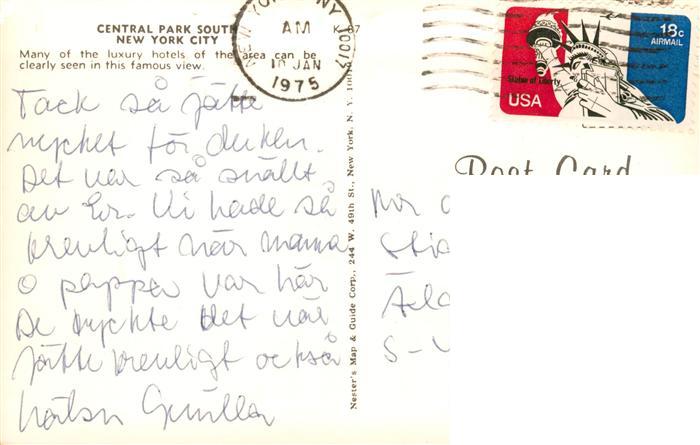 CENTRAL PARK SOUTH
NEW YORK CITY
K-87
Many of the luxury hotels of the area can be
clearly seen in this famous view.
NEW YORK, NY
AM
10 JAN
1975
10017
18c
AIRMAIL
Statue of Liberty
USA
Post Card
Tack så jätte
mycket för duken.
Det var så snällt
av Er. Vi hade så
trevligt när mama
o pappa var här
De tyckte det var
jätte trevligt också
hälsn Gunilla
Nester's Map & Guide Corp., 244 W. 49th St., New York, N. Y. 10019
S-